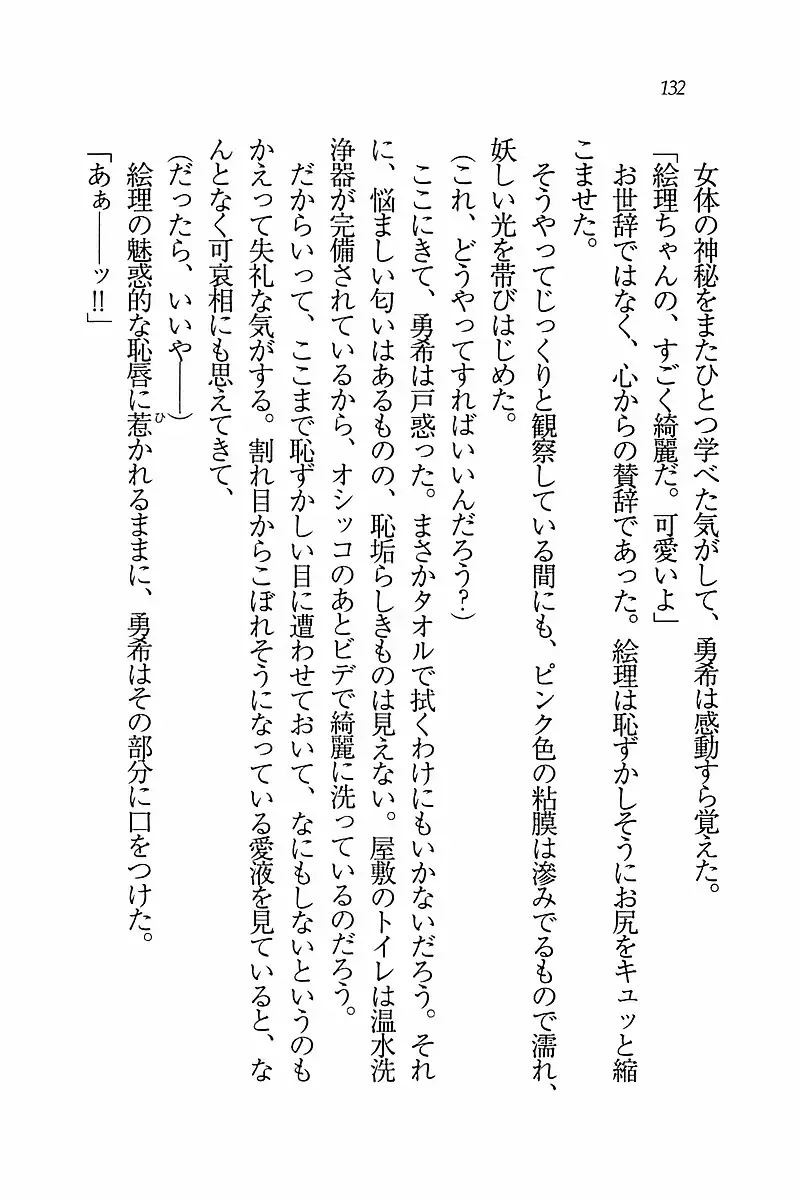 132
女体の神秘をまたひとつ学べた気がして、勇希は感動すら覚えた。
「絵理ちゃんの、すごく綺麗だ。可愛いよ」
お世辞ではなく、心からの賛辞であった。絵理は恥ずかしそうにお尻をキュッと縮
こませた。
そうやってじっくりと観察している間にも、ピンク色の粘膜は滲みでるもので濡れ、
妖しい光を帯びはじめた。
(これ、どうやってすればいいんだろう?)
ここにきて、勇希は戸惑った。まさかタオルで拭くわけにもいかないだろう。それ
に、悩ましい匂いはあるものの、恥垢らしきものは見えない。屋敷のトイレは温水洗
浄器が完備されているから、オシッコのあとビデで綺麗に洗っているのだろう。
だからいって、ここまで恥ずかしい目に遭わせておいて、なにもしないというのも
かえって失礼な気がする。割れ目からこぼれそうになっている愛液を見ていると、な
んとなく可哀相にも思えてきて、
(だったら、いいや――)
絵理の魅惑的な恥唇に惹かれるままに、勇希はその部分に口をつけた。
「あぁ――ッ!!」